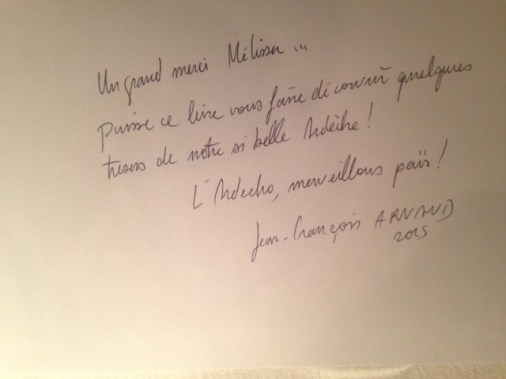 Un grand merci Mélissa ...
Puisse ce livre vous faire découvrir quelques
trésors de notre si belle Ardèche !
L'Ardecho, merveillous païs !
Jean-François ARNAUD
2015